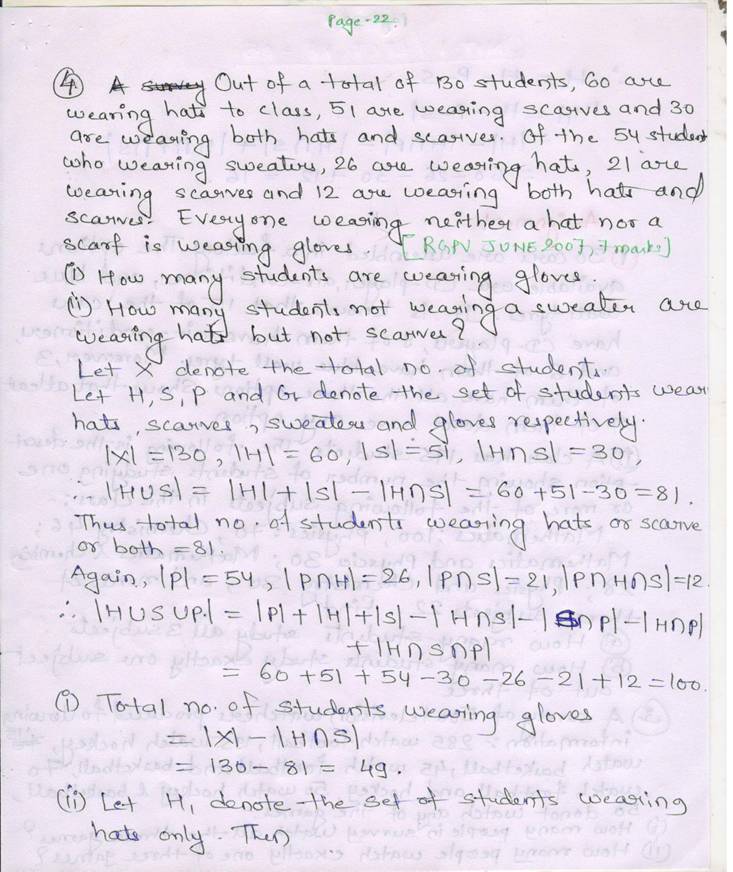 Page-22.
④ A survey Out of a total of 130 students, 60 are
wearing hats to class, 51 are wearing scarves and 30
are wearing both hats and scarves. Of the 54 student
who wearing sweaters, 26 are wearing hats, 21 are
wearing scarves and 12 are wearing both hats and
scarves. Everyone wearing neither a hat nor a
scarf is wearing gloves. [RGPV JUNE 2007, 7 marks]
(i) How many students are wearing gloves.
(ii) How many students not wearing a sweater are
wearing hats but not scarves?
Let X denote the total no. of students.
Let H, S, P and G denote the set of students wear
hats, scarves, sweaters and gloves respectively.
|X| = 130, |H| = 60, |S| = 51, |H∩S| = 30,
∴ |H∪S| = |H| + |S| - |H∩S| = 60 + 51 - 30 = 81.
Thus total no. of students wearing hats or scarve
or both = 81.
Again, |P| = 54, |P∩H| = 26, |P∩S| = 21, |P∩H∩S| = 12.
∴ |H∪S∪P| = |P| + |H| + |S| - |H∩S| - |S∩P| - |H∩P|
+ |H∩S∩P|
= 60 + 51 + 54 - 30 - 26 - 21 + 12 = 100.
(i) Total no. of students wearing gloves
= |X| - |H∩S|
= 130 - 81 = 49.
(ii) Let H, denote the set of students wearing
hats only. Then